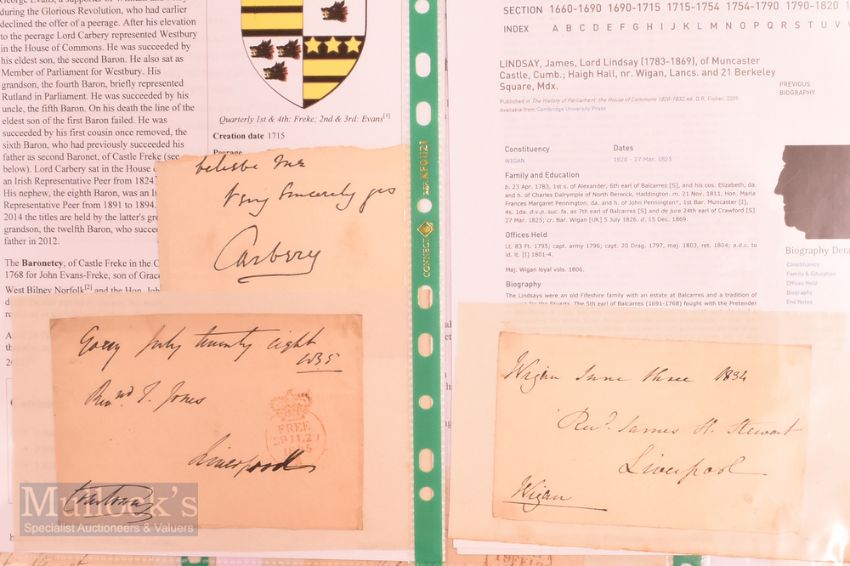 George Evans, a supporter of William and Mary
during the Glorious Revolution, who had earlier
declined the offer of a peerage. After his elevation
to the peerage Lord Carbery represented Westbury
in the House of Commons. He was succeeded by
his eldest son, the second Baron. He also sat as
Member of Parliament for Westbury. His
grandson, the fourth Baron, briefly represented
Rutland in Parliament. He was succeeded by his
uncle, the fifth Baron. On his death the line of the
eldest son of the first Baron failed. He was
succeeded by his first cousin once removed, the
sixth Baron, who had previously succeeded his
father as second Baronet, of Castle Freke (see
below). Lord Carbery sat in the House
an Irish Representative Peer from 1824
His nephew, the eighth Baron, was an
Representative Peer from 1891 to 1894.
2014 the titles are held by the latter's
grandson, the twelfth Baron, who
father in 2012.
The Baronetcy, of Castle Freke in the
1768 for John Evans-Freke, son of Grace
West Bilney Norfolk[2] and the Hon. Joh
Quarterly 1st & 4th: Freke; 2nd & 3rd: Evans[1]
Creation date 1715
Peerage
believe me
Very Sincerely yrs
Carbery
Gorey July twenty eight
1835
Revnd. T. Jones
Liverpool
FREE
Courtown
Mullock's
Specialist Auctioneers & Valuers
CONNECT
REF: KF01121
SECTION 1660-1690 1690-1715 1715-1754 1754-1790 1790-1820
INDEX A B C D E F G H I J K L M N O P Q R S T U V
LINDSAY, James, Lord Lindsay (1783-1869), of Muncaster
Castle, Cumb.; Haigh Hall, nr. Wigan, Lancs. and 21 Berkeley
Square, Mdx.
PREVIOUS
BIOGRAPHY
Published in The History of Parliament: the House of Commons 1820-1832, ed. D.R. Fisher, 2009
Available from Cambridge University Press
Constituency Dates
WIGAN 1820 - 27 Mar. 1825
Family and Education
b. 23 Apr. 1783, 1st s. of Alexander, 6th earl of Balcarres [S], and his cos. Elizabeth, da.
and h. of Charles Dalrymple of North Berwick, Haddington. m. 21 Nov. 1811, Hon. Maria
Frances Margaret Pennington, da. and h. of John Pennington†, 1st Bar. Muncaster [I],
4s. 1da. d.v.p. suc. fa. as 7th earl of Balcarres [S] and de jure 24th earl of Crawford [S]
27 Mar. 1825; cr. Bar. Wigan [UK] 5 July 1826. d. 15 Dec. 1869.
Offices Held
Lt. 83 Ft. 1795; capt. army 1796; capt. 20 Drag. 1797, maj. 1803, ret. 1804; a.d.c. to
ld. lt. [I] 1801-4.
Maj. Wigan loyal vols. 1806.
Biography
The Lindsays were an old Fifeshire family with an estate at Balcarres and a tradition of
for the Stuarts. The 5th earl of Balcarres (1691-1768) fought with the Pretender
Biography Deta
Constituency
Family & Education
Offices Held
Biography
End Notes
Wigan June three 1834
Revd. James H. Stewart
Liverpool
Wigan